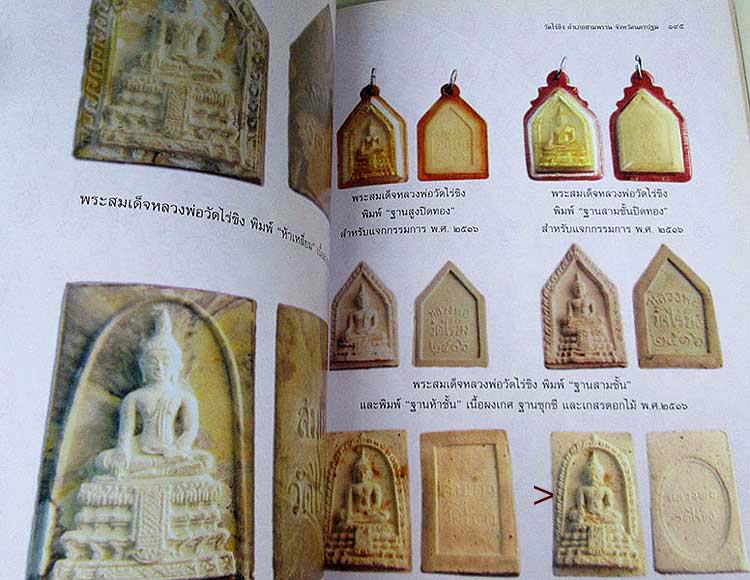 พระสมเด็จหลวงพ่อวัดไร่ขิง พิมพ์ "ห้าเหลี่ยม"
วัดไร่ขิง อำเภอสามพราน จังหวัดนครปฐม ๑๙๕
พระสมเด็จหลวงพ่อวัดไร่ขิง
พิมพ์ "ฐานสูงปิดทอง"
สำหรับแจกกรรมการ พ.ศ. ๒๕๑๖
พระสมเด็จหลวงพ่อวัดไร่ขิง
พิมพ์ "ฐานสามชั้นปิดทอง"
สำหรับแจกกรรมการ พ.ศ. ๒๕๑๖
หลวงพ่อ
วัดไร่ขิง
๒๕๑๖
หลวงพ่อ
วัดไร่ขิง
๒๕๑๖
พระสมเด็จหลวงพ่อวัดไร่ขิง พิมพ์ "ฐานสามชั้น"
และพิมพ์ "ฐานห้าชั้น" เนื้อผงเกศ ฐานชุกชี และเกสรดอกไม้ พ.ศ.๒๕๑๖
>
หลวงพ่อ
วัดไร่ขิง